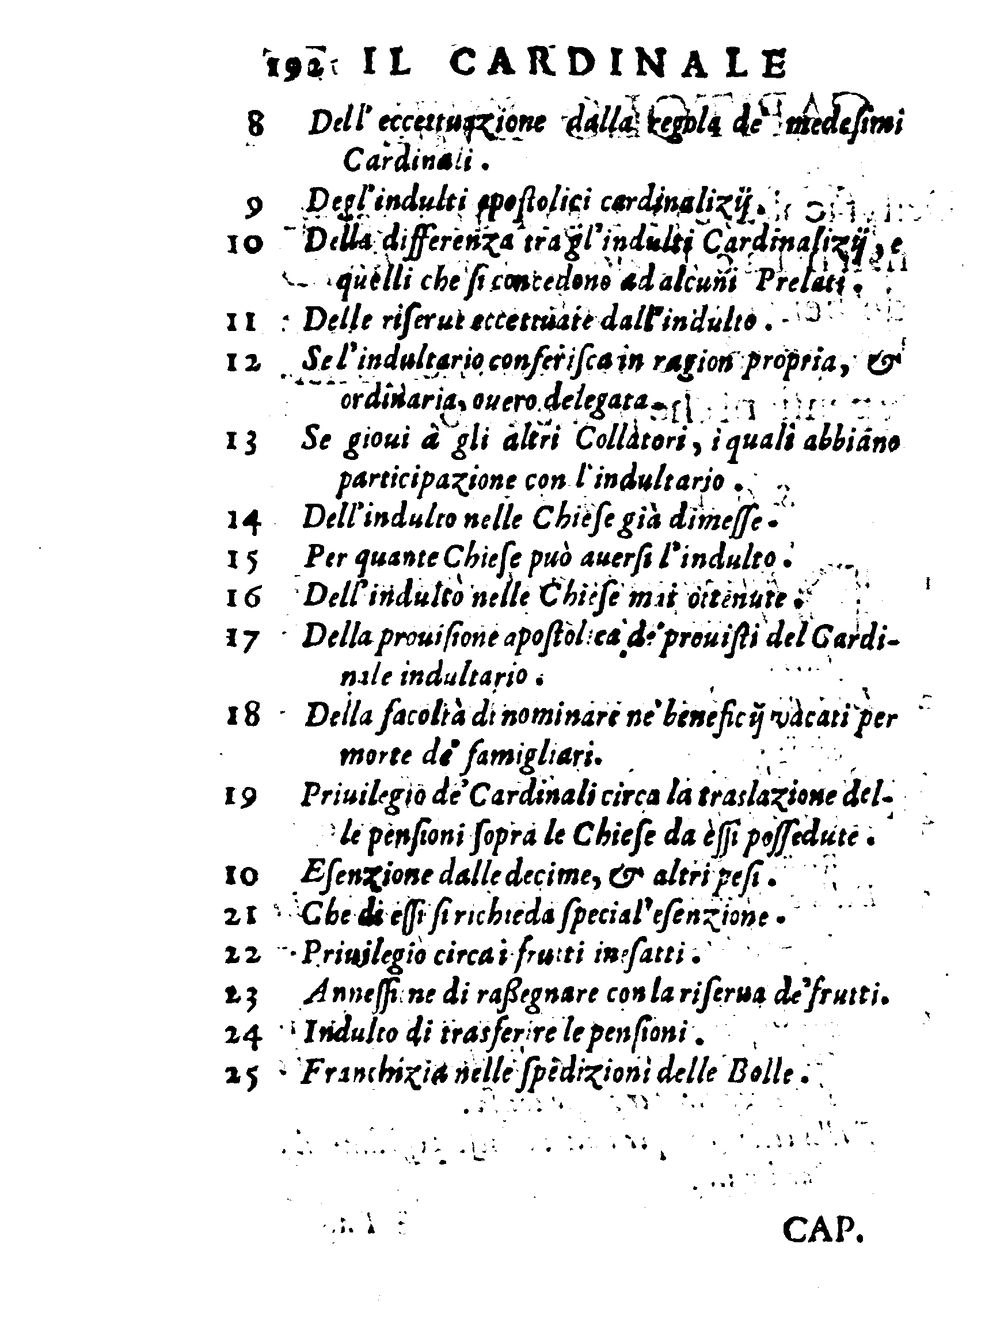 192 IL CARDINALE
8 Dell' eccettuazione dalla regola de' medesimi
Cardinali.
9 Degl'indulti apostolici cardinalizij.
10 Della differenza tra gl'indulti Cardinalizij, e
quelli che si concedono ad alcuni Prelati.
11 Delle riserue eccettuate dall'indulto.
12 Se l'indultario conferisca in ragion propria, &
ordinaria, ouero delegata.
13 Se gioui à gli altri Collatori, i quali abbiano
participazione con l'indultario.
14 Dell'indulto nelle Chiese già dimesse.
15 Per quante Chiese può auersi l'indulto.
16 Dell'indulto nelle Chiese mai ottenute.
17 Della prouisione apostolica de' prouisti del Cardi-
nale indultario.
18 Della facoltà di nominare ne' beneficij vacati per
morte de' famigliari.
19 Priuilegio de' Cardinali circa la traslazione del-
le pensioni sopra le Chiese da essi possedute.
10 Esenzione dalle decime, & altri pesi.
21 Che di essi si richieda special'esenzione.
22 Priuilegio circa i frutti inesatti.
23 Annessione di rassegnare con la riserua de' frutti.
24 Indulto di trasferire le pensioni.
25 Franchizia nelle spedizioni delle Bolle.
CAP.